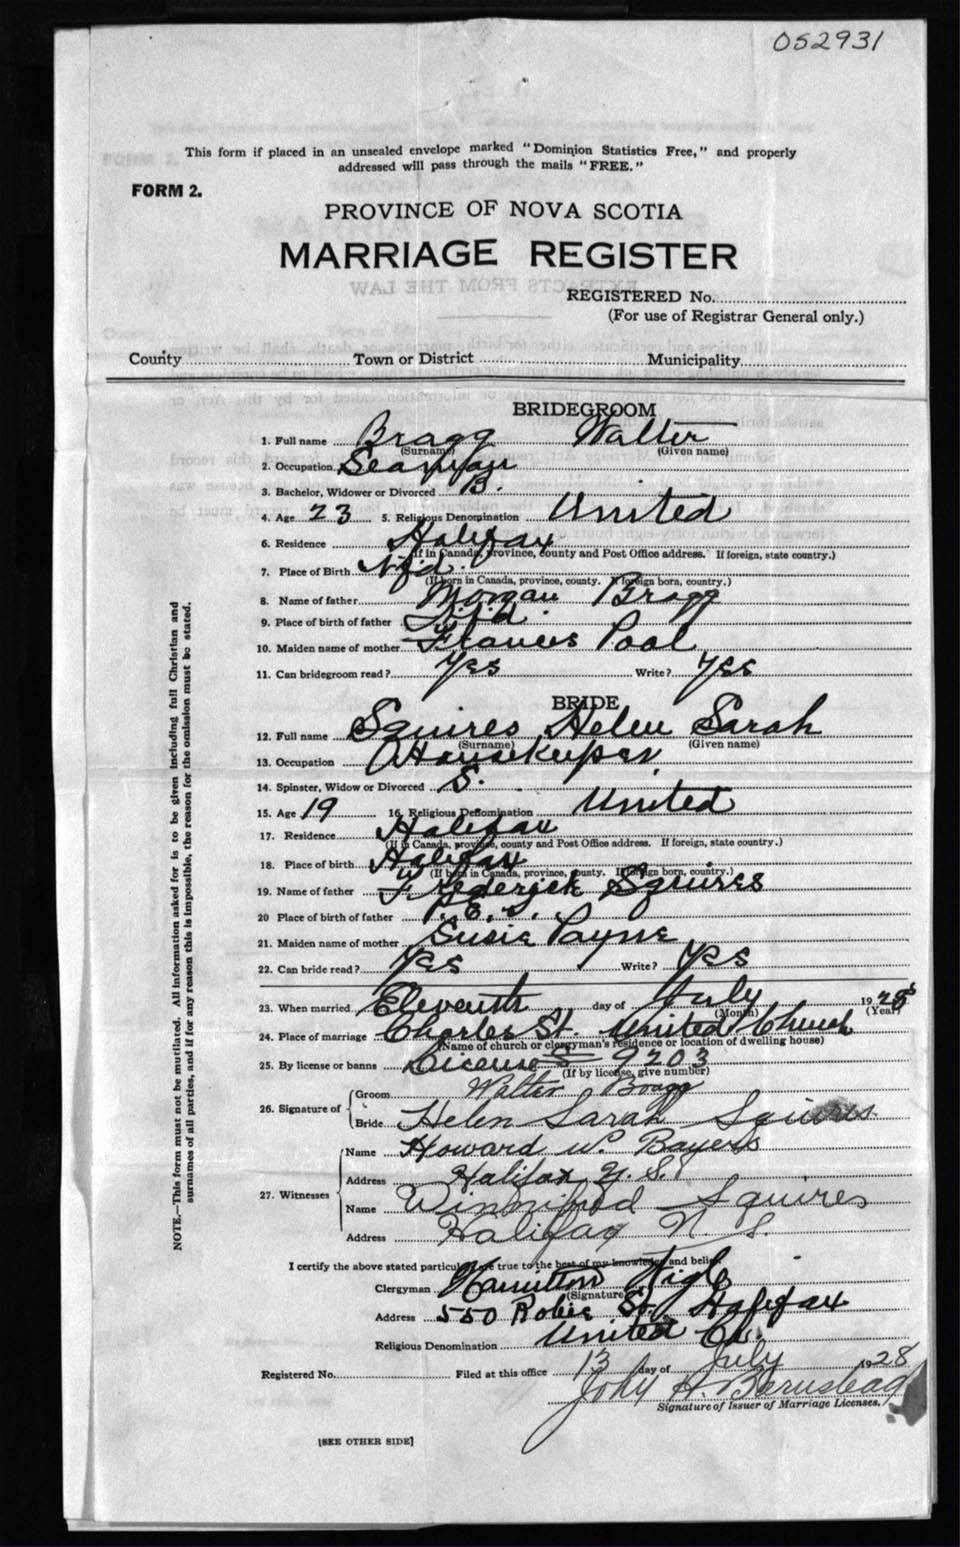 052931
This form if placed in an unsealed envelope marked "Dominion Statistics Free," and properly
addressed will pass through the mails "FREE."
FORM 2.
PROVINCE OF NOVA SCOTIA
MARRIAGE REGISTER
REGISTERED No.
(For use of Registrar General only.)
County Town or District Municipality
BRIDEGROOM
1. Full name Bragg Walter
(Surname) (Given name)
2. Occupation Seaman
3. Bachelor, Widower or Divorced B.
4. Age 23 5. Religious Denomination United
6. Residence Halifax
(If in Canada, province, county and Post Office address. If foreign, state country.)
7. Place of Birth Nfd.
(If born in Canada, province, county. If foreign born, country.)
8. Name of father Morgan Bragg
9. Place of birth of father Nfd.
10. Maiden name of mother Frances Pool
11. Can bridegroom read? Yes Write? Yes
BRIDE
12. Full name Squires Helen Sarah
(Surname) (Given name)
13. Occupation Housekeeper
14. Spinster, Widow or Divorced S.
15. Age 19 16. Religious Denomination United
17. Residence Halifax
(If in Canada, province, county and Post Office address. If foreign, state country.)
18. Place of birth Halifax
(If born in Canada, province, county. If foreign born, country.)
19. Name of father Frederick Squires
20 Place of birth of father P. E. I.
21. Maiden name of mother Susie Payne
22. Can bride read? Yes Write? Yes
23. When married Eleventh day of July 1928
(Month) (Year)
24. Place of marriage Charles St. United Church
(Name of church or clergyman's residence or location of dwelling house)
25. By license or banns License 9203
(If by license, give number)
26. Signature of Groom Walter Bragg
Bride Helen Sarah Squires
27. Witnesses Name Howard W. Bayers
Address Halifax N. S.
Name Winnifred Squires
Address Halifax N. S.
I certify the above stated particulars are true to the best of my knowledge and belief.
Clergyman Hamilton
(Signature)
Address 550 Robie St. Halifax
Religious Denomination United Ch.
Registered No. Filed at this office 13 day of July 1928
John H.
Signature of Issuer of Marriage Licenses.
[SEE OTHER SIDE]
NOTE.—This form must not be mutilated. All information asked for is to be given including full Christian and
surnames of all parties, and if for any reason this is impossible, the reason for the omission must be stated.